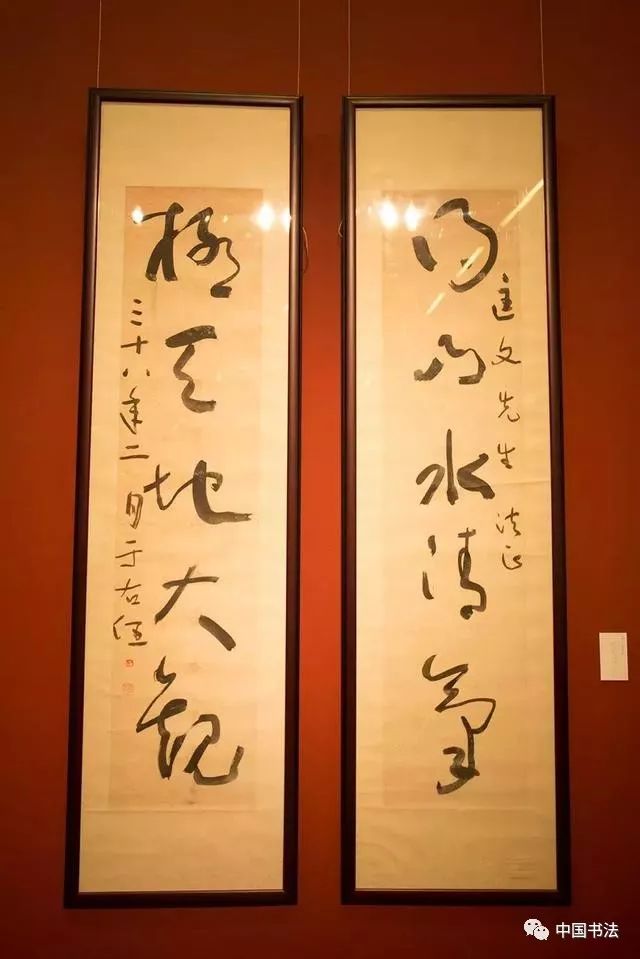 匡文先生 法正
得山水清氣
極天地大觀
三十八年二月于右任
中国书法